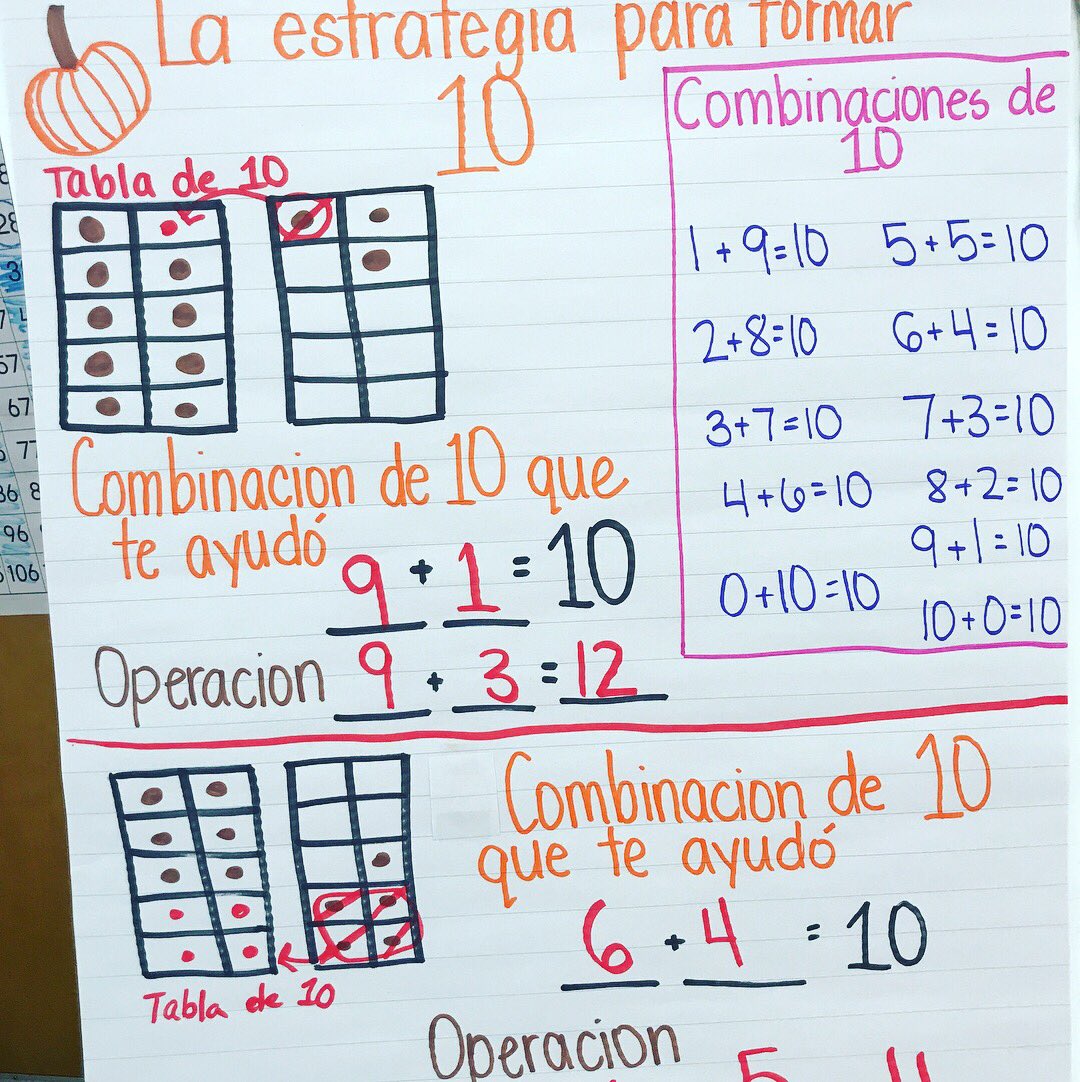 La estrategia para formar
10
Tabla de 10
Combinacion de 10 que
te ayudó
9 + 1 = 10
Operacion 9 + 3 = 12
Combinaciones de
10
1 + 9 = 10 5 + 5 = 10
2 + 8 = 10 6 + 4 = 10
3 + 7 = 10 7 + 3 = 10
4 + 6 = 10 8 + 2 = 10
9 + 1 = 10
0 + 10 = 10
10 + 0 = 10
Tabla de 10
Combinacion de 10
que te ayudó
6 + 4 = 10
Operacion
28
67
77
86
96
106